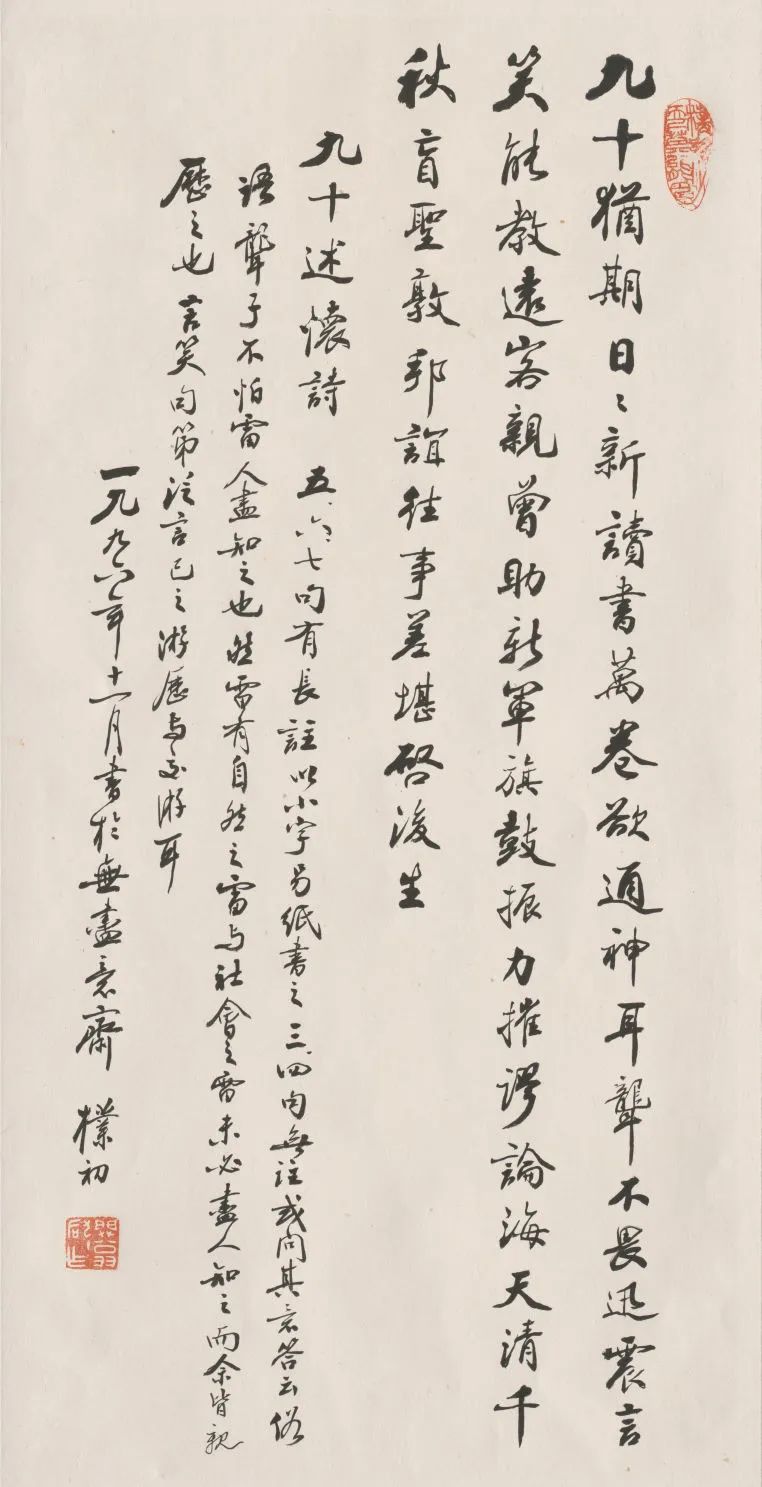 九十猶期日〻新讀書萬卷欲通神耳聾不畏迅震言
笑能教遠客親曾助新軍旗鼓振力摧謬論海天清千
秋盲聖敦邦誼往事差堪啓後生
九十述懷詩 五、六、七句有長註以小字另紙書之三、四句無註或問其意答云俗
語聾子不怕雷人盡知之也然雷有自然之雷與社會之雷未必盡人知之而余皆親
歷之也言笑句第泛言已之游歷与交游耳
一九九六年十一月書於無盡意齋 樸初